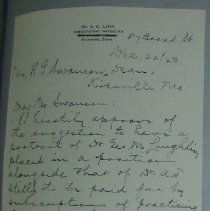 DR. E. C. LINK
OSTEOPATHIC PHYSICIAN
STAMFORD, CONN.
87 Broad St
Dec. 26/28
Mr. H G Swanson, Dean,
Kirksville Mo
Dear Mr. Swanson:
I heartily approve of
the suggestion to have a
portrait of Dr Geo M Laughlin
placed in a position
alongside that of Dr. A. T.
Still, to be paid for by
subscriptions of practicing